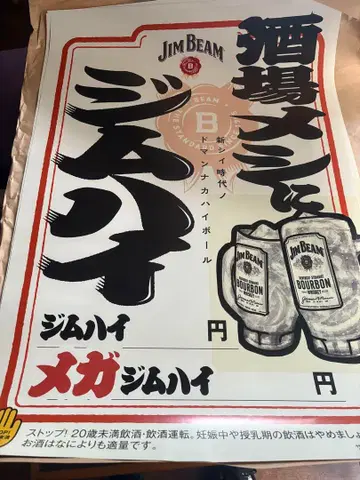 酒場メシに
ジムハイ
JIM BEAM
B
新シイ時代ノ
ドマンナカハイボール
BEAM
THE STANDARD
B
JIM BEAM
BOURBON
WHISKEY
JIM BEAM
KENTUCKY STRAIGHT
BOURBON
WHISKEY
ジムハイ 円
メガジムハイ 円
ストップ!20歳未満飲酒・飲酒運転。妊娠中や授乳期の飲酒はやめましょ
お酒はなによりも適量です。